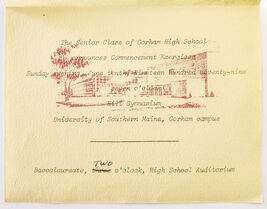 The Senior Class of Gorham High School
announces Commencement Exercises
Sunday evening, June tenth Nineteen Hundred Seventy-nine
Seven o'clock
Hill Gymnasium
University of Southern Maine, Gorham campus
TWO
Baccalaureate, three o'clock, High School Auditorium